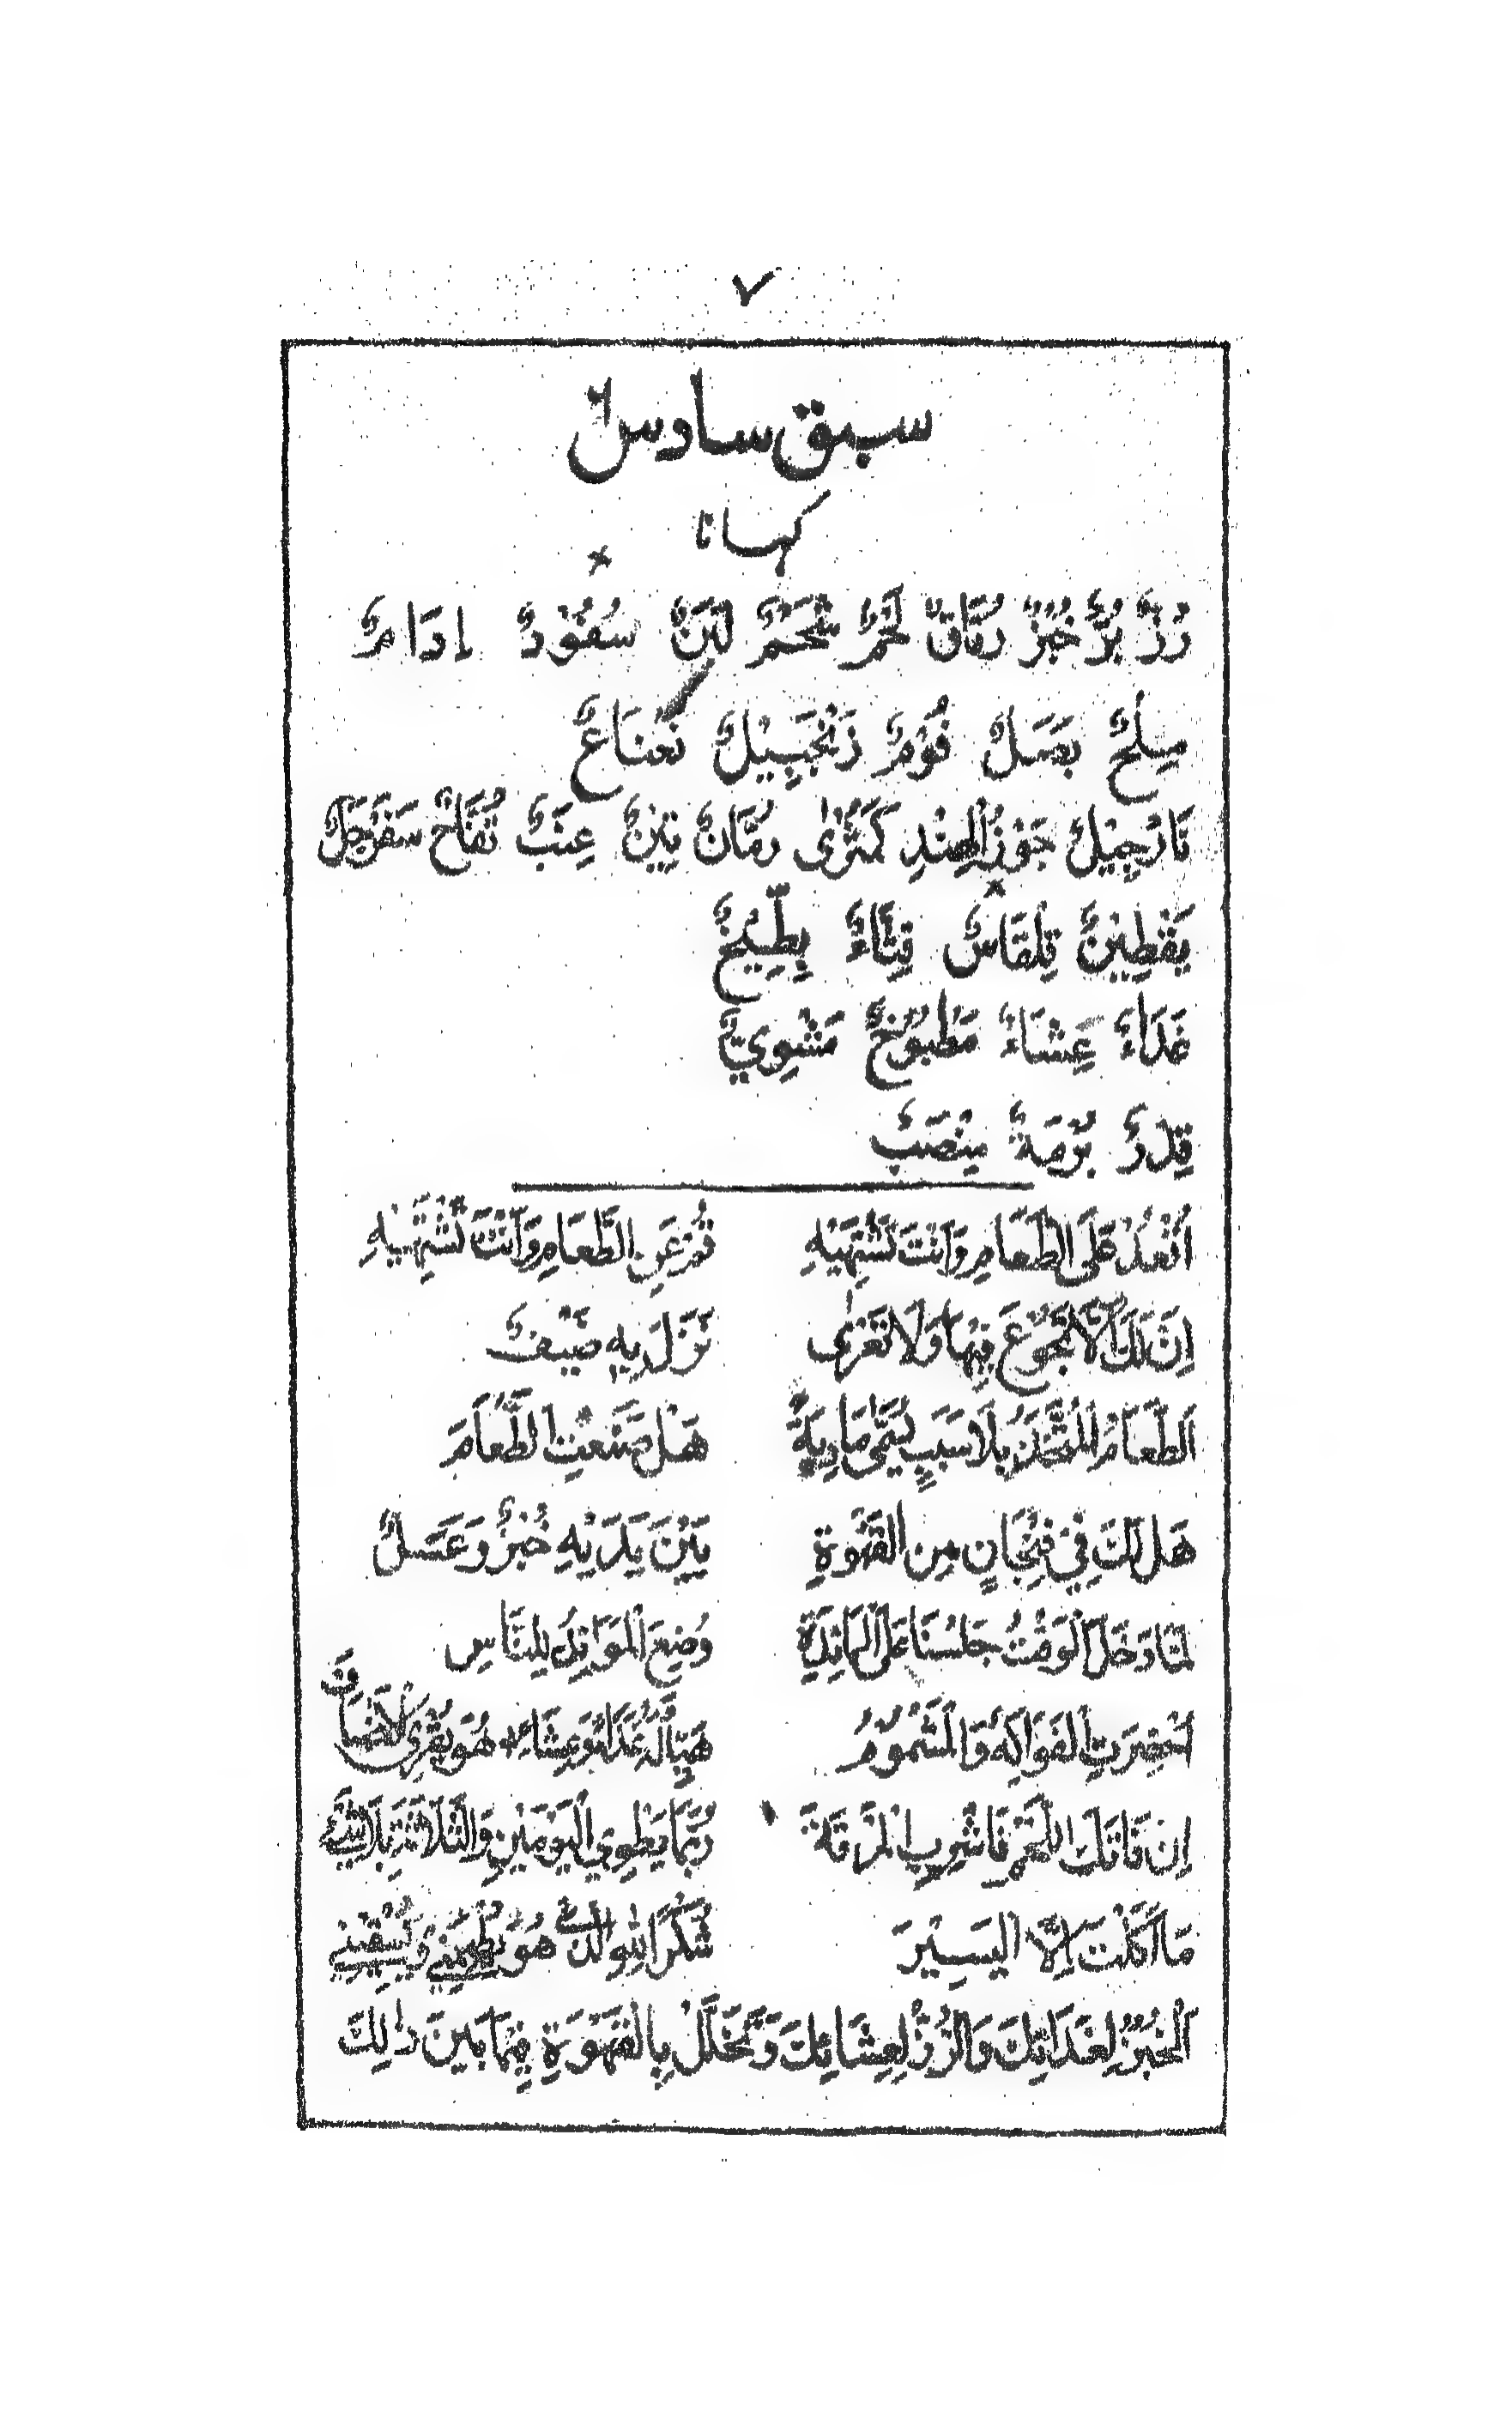 ٧
سبق سادس ٦
کہانا
رُزٌّ بُرٌّ خُبْزٌ رُقَاقٌ لَحْمٌ شَحْمٌ لَبَنٌ سَفُوْدٌ إِدَامٌ
مِلْحٌ بَصَلٌ فُوْمٌ زَنْجَبِيْلٌ نَعْنَاعٌ
نَارْجِيْلٌ جَوْزُ الْهِنْدِ كُمَّثْرٰى رُمَّانٌ تِيْنٌ عِنَبٌ تُفَّاحٌ سَفَرْجَلٌ
يَقْطِيْنٌ قِلْقَاسٌ قِثَّاءٌ بِطِّيْخٌ
غَدَاءٌ عَشَاءٌ مَطْبُوْخٌ مَشْوِيٌّ
قِدْرٌ بُرْمَةٌ مِنْصَبٌ
اُقْعُدْ عَلَى الطَّعَامِ وَاَنْتَ تَشْتَهِيْهِ قُمْ عَنِ الطَّعَامِ وَاَنْتَ تَشْتَهِيْهِ
اِنَّ لَكَ اَلَّا تَجُوْعَ فِيْهَا وَلَا تَعْرٰى نَزَلَ بِهِ ضَيْفٌ
اَلطَّعَامُ الْمُتَّخَذُ بِلَا سَبَبٍ يُسَمّٰى مَادِبَةً هَلْ صَنَعْتِ الطَّعَامَ
هَلْ لَكَ فِيْ فِنْجَانٍ مِنَ الْقَهْوَةِ بَيْنَ يَدَيْهِ خُبْزٌ وَعَسَلٌ
لَمَّا دَخَلَ الْوَقْتُ جَلَسْنَا عَلَى الْمَائِدَةِ وُضِعَ الْمَوَائِدُ لِلنَّاسِ
اُحْضِرَتِ الْفَوَاكِهُ وَالْمَشْمُوْمُ هَيَّا لَهُ غَدَاءَهُ وَعِشَاءَهُ هُوَ يُقْرِى الْاَضْيَافَ
اِنْ فَاتَكَ اللَّحْمُ فَاشْرِبِ الْمَرَقَةَ رُبَّمَا يَطْوِي الْيَوْمَيْنِ وَالثَّلَاثَةَ بِلَا شَيْءٍ
مَا اَكَلْتَ اِلَّا الْيَسِيْرَ شُكْرًا لِلّٰهِ الَّذِيْ هُوَ يُطْعِمُنِيْ وَيَسْقِيْنِيْ
اَلْخُبْزُ لِغَدَائِكَ وَالرُّزُّ لِعِشَائِكَ وَتَخَلَّلْ بِالْقَهْوَةِ فِيْمَا بَيْنَ ذٰلِكَ